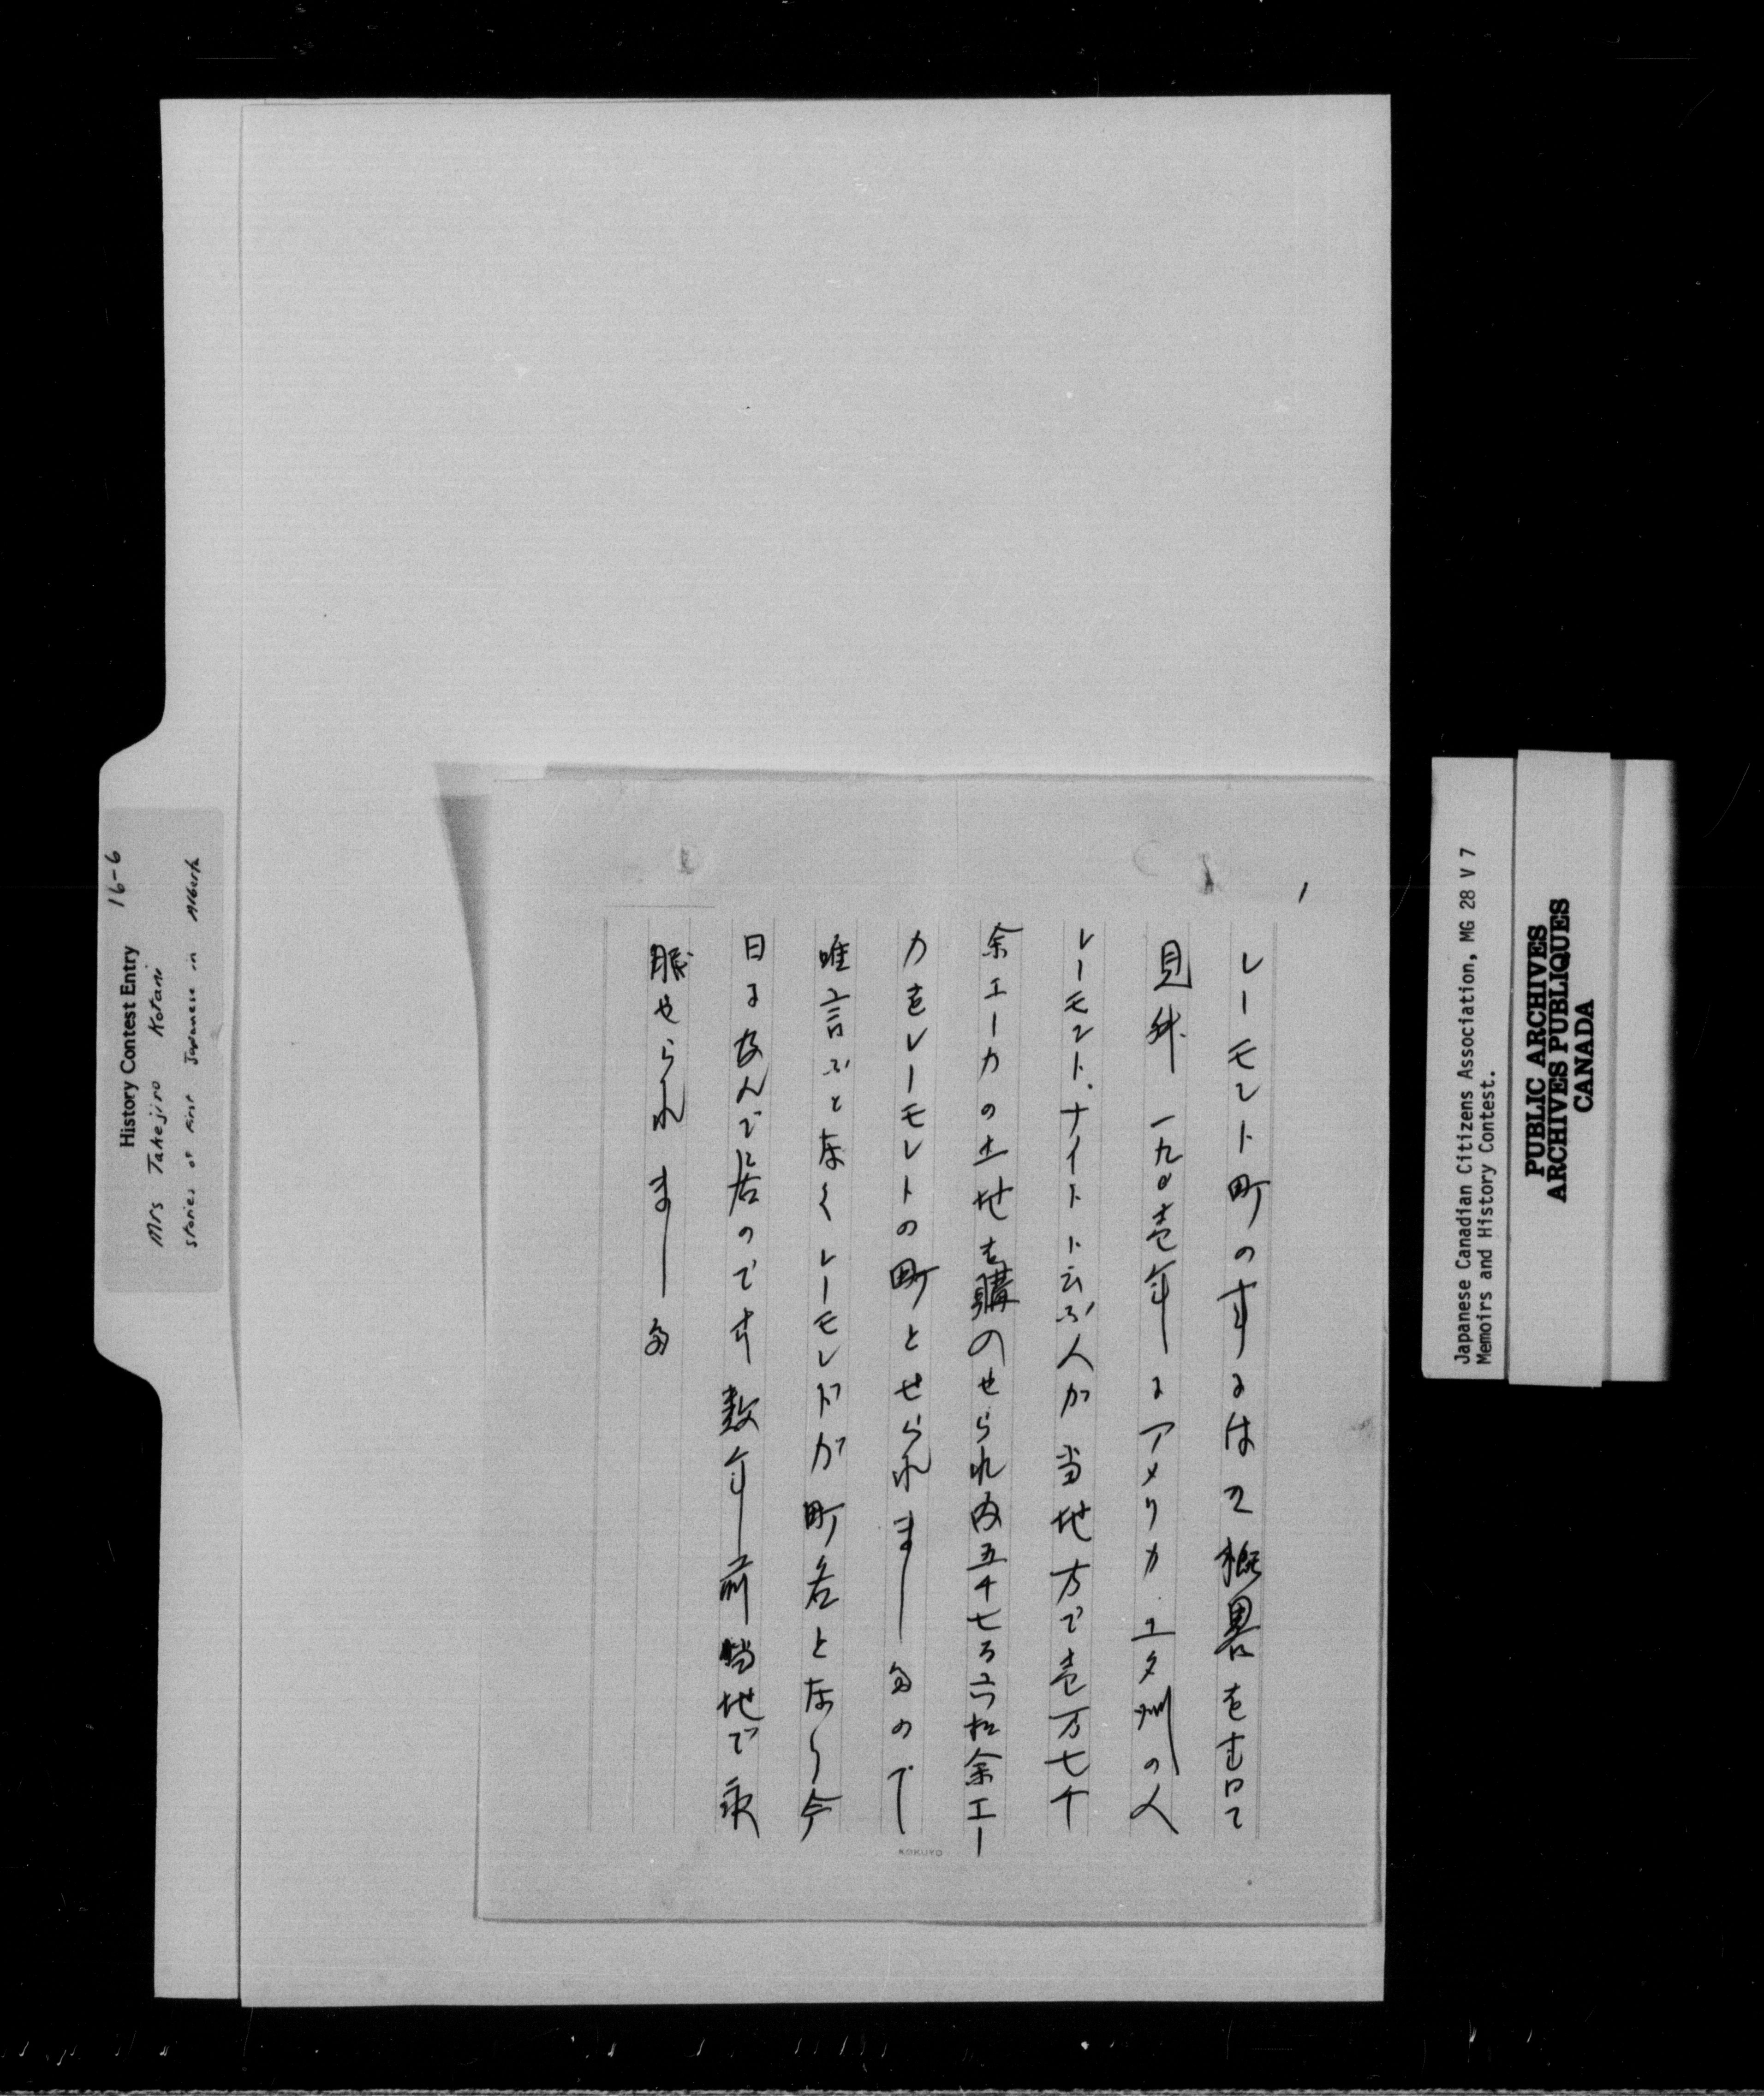 History Contest Entry 16-6
Mrs Takejiro Kotani
Stories of First Japanese in Alberta
1
レーモント町のすはの概畧を書て
見舛 一九〇壱年にアメリカ.ユタ州の人
レーモント.ナイトト云ふ人が当地方で壱万七千
余エーカの土地を購のせられ内五千七百六拾余エー
カをレーモントの町とせられましたので
唯言ふとなくレーモンドが町名となり今
日に及んで居のです 数年前当地で永
眠せられました
KOKUYO
Japanese Canadian Citizens Association, MG 28 V 7
Memoirs and History Contest.
PUBLIC ARCHIVES
ARCHIVES PUBLIQUES
CANADA